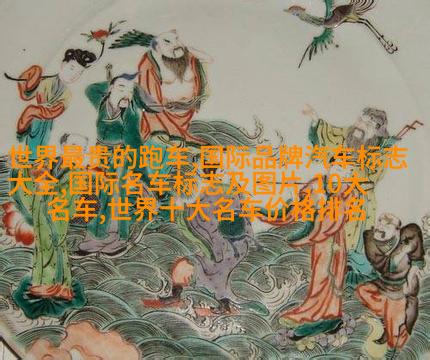 世界最贵的跑车,国际品牌汽车标志
大全,国际名车标志及图片,10大
名车,世界十大名车价格排名